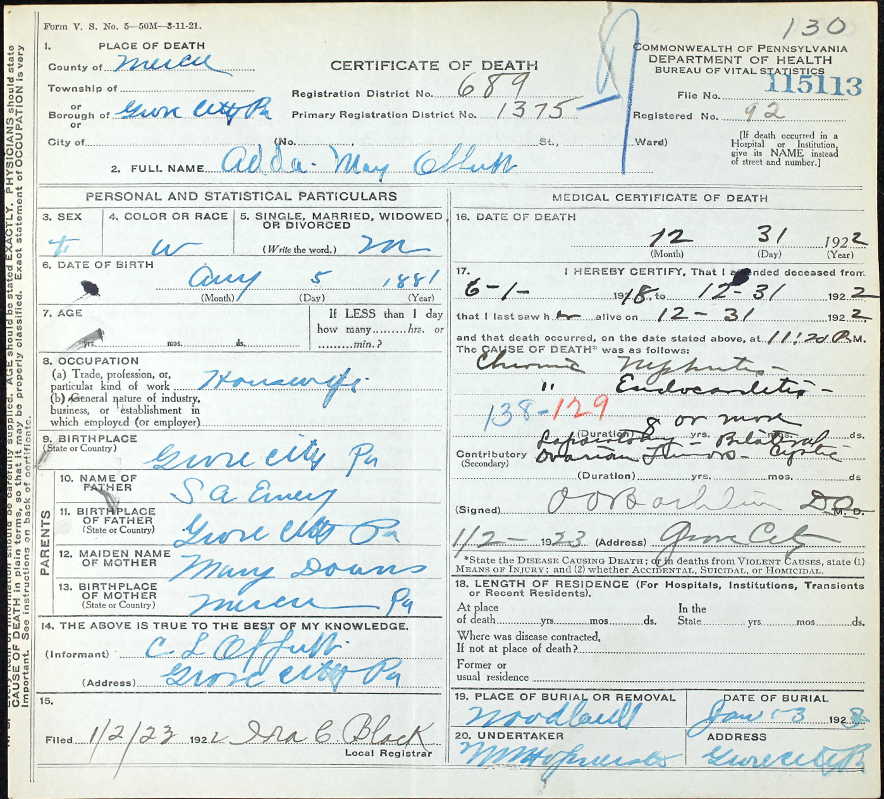 Form V. S. No. 5—50M—3-11-21.
130
1. PLACE OF DEATH
County of Mercer
Township of
or
Borough of Grove City Pa
or
City of
CERTIFICATE OF DEATH
Registration District No. 689
Primary Registration District No. 1375
(No. , St., Ward)
COMMONWEALTH OF PENNSYLVANIA
DEPARTMENT OF HEALTH
BUREAU OF VITAL STATISTICS
115113
File No.
Registered No. 92
[If death occurred in a Hospital or Institution, give its NAME instead of street and number.]
2. FULL NAME Adda May Offutt
PERSONAL AND STATISTICAL PARTICULARS
3. SEX
F
4. COLOR OR RACE
W
5. SINGLE, MARRIED, WIDOWED OR DIVORCED
(Write the word.) M
6. DATE OF BIRTH
Aug 5 1881
(Month) (Day) (Year)
7. AGE
yrs. mos. ds.
If LESS than 1 day how many hrs. or min.?
8. OCCUPATION
(a) Trade, profession, or, particular kind of work Housewife
(b) General nature of industry, business, or establishment in which employed (or employer)
9. BIRTHPLACE
(State or Country)
Grove City Pa
PARENTS
10. NAME OF FATHER
S A Emery
11. BIRTHPLACE OF FATHER
(State or Country)
Grove City Pa
12. MAIDEN NAME OF MOTHER
Mary Downs
13. BIRTHPLACE OF MOTHER
(State or Country)
Mercer Pa
14. THE ABOVE IS TRUE TO THE BEST OF MY KNOWLEDGE.
(Informant) C L Offutt
(Address) Grove City Pa
15.
Filed 1/2/23 192 Ira C Black
Local Registrar
MEDICAL CERTIFICATE OF DEATH
16. DATE OF DEATH
12 31 1922
(Month) (Day) (Year)
17. I HEREBY CERTIFY, That I attended deceased from
6-1- 1918. to 12-31 1922
that I last saw her alive on 12-31 1922
and that death occurred, on the date stated above, at 11:20 P. M.
The CAUSE OF DEATH* was as follows:
Chronic Nephritis -
" Endocarditis -
138-129
8 or more
(Duration) yrs. mos. ds.
Contributory Laparotomy - Bilateral
(Secondary) Ovarian Tumors - Cystic
(Duration) yrs. mos. ds
(Signed) D.O. M. D.
1/2- 1923 (Address) Grove City
*State the DISEASE CAUSING DEATH; or in deaths from VIOLENT CAUSES, state (1) MEANS OF INJURY; and (2) whether ACCIDENTAL, SUICIDAL, or HOMICIDAL.
18. LENGTH OF RESIDENCE (For Hospitals, Institutions, Transients or Recent Residents).
At place of death yrs. mos. ds. In the State yrs. mos. ds.
Where was disease contracted, If not at place of death?
Former or usual residence
19. PLACE OF BURIAL OR REMOVAL
DATE OF BURIAL
Jan 3 1923
20. UNDERTAKER
ADDRESS
Grove City Pa
CAUSE OF DEATH in plain terms, so that it may be properly classified. Exact statement of OCCUPATION is very
important. See instructions on back of certificate.